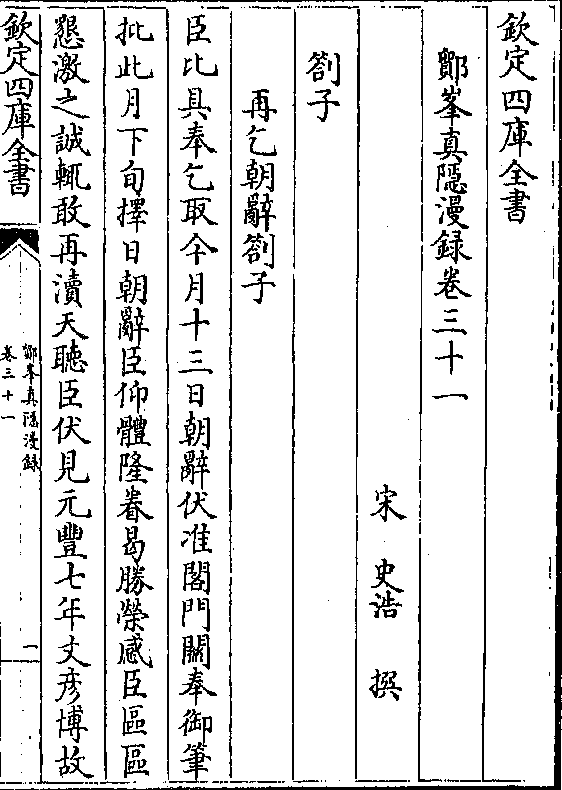 欽定四庫全書
鄮峯真隱漫録卷三十一
宋 史浩 撰
劄子
再乞朝辭劄子
臣比具奉乞取今月十三日朝辭伏准閣門關奉御筆
批此月下旬擇日朝辭臣仰體隆眷曷勝榮感臣區區
懇激之誠輒敢再瀆天聽臣伏見元豐七年文彦博故
欽定四庫全書
鄮峯真隱漫録
卷三十一
一